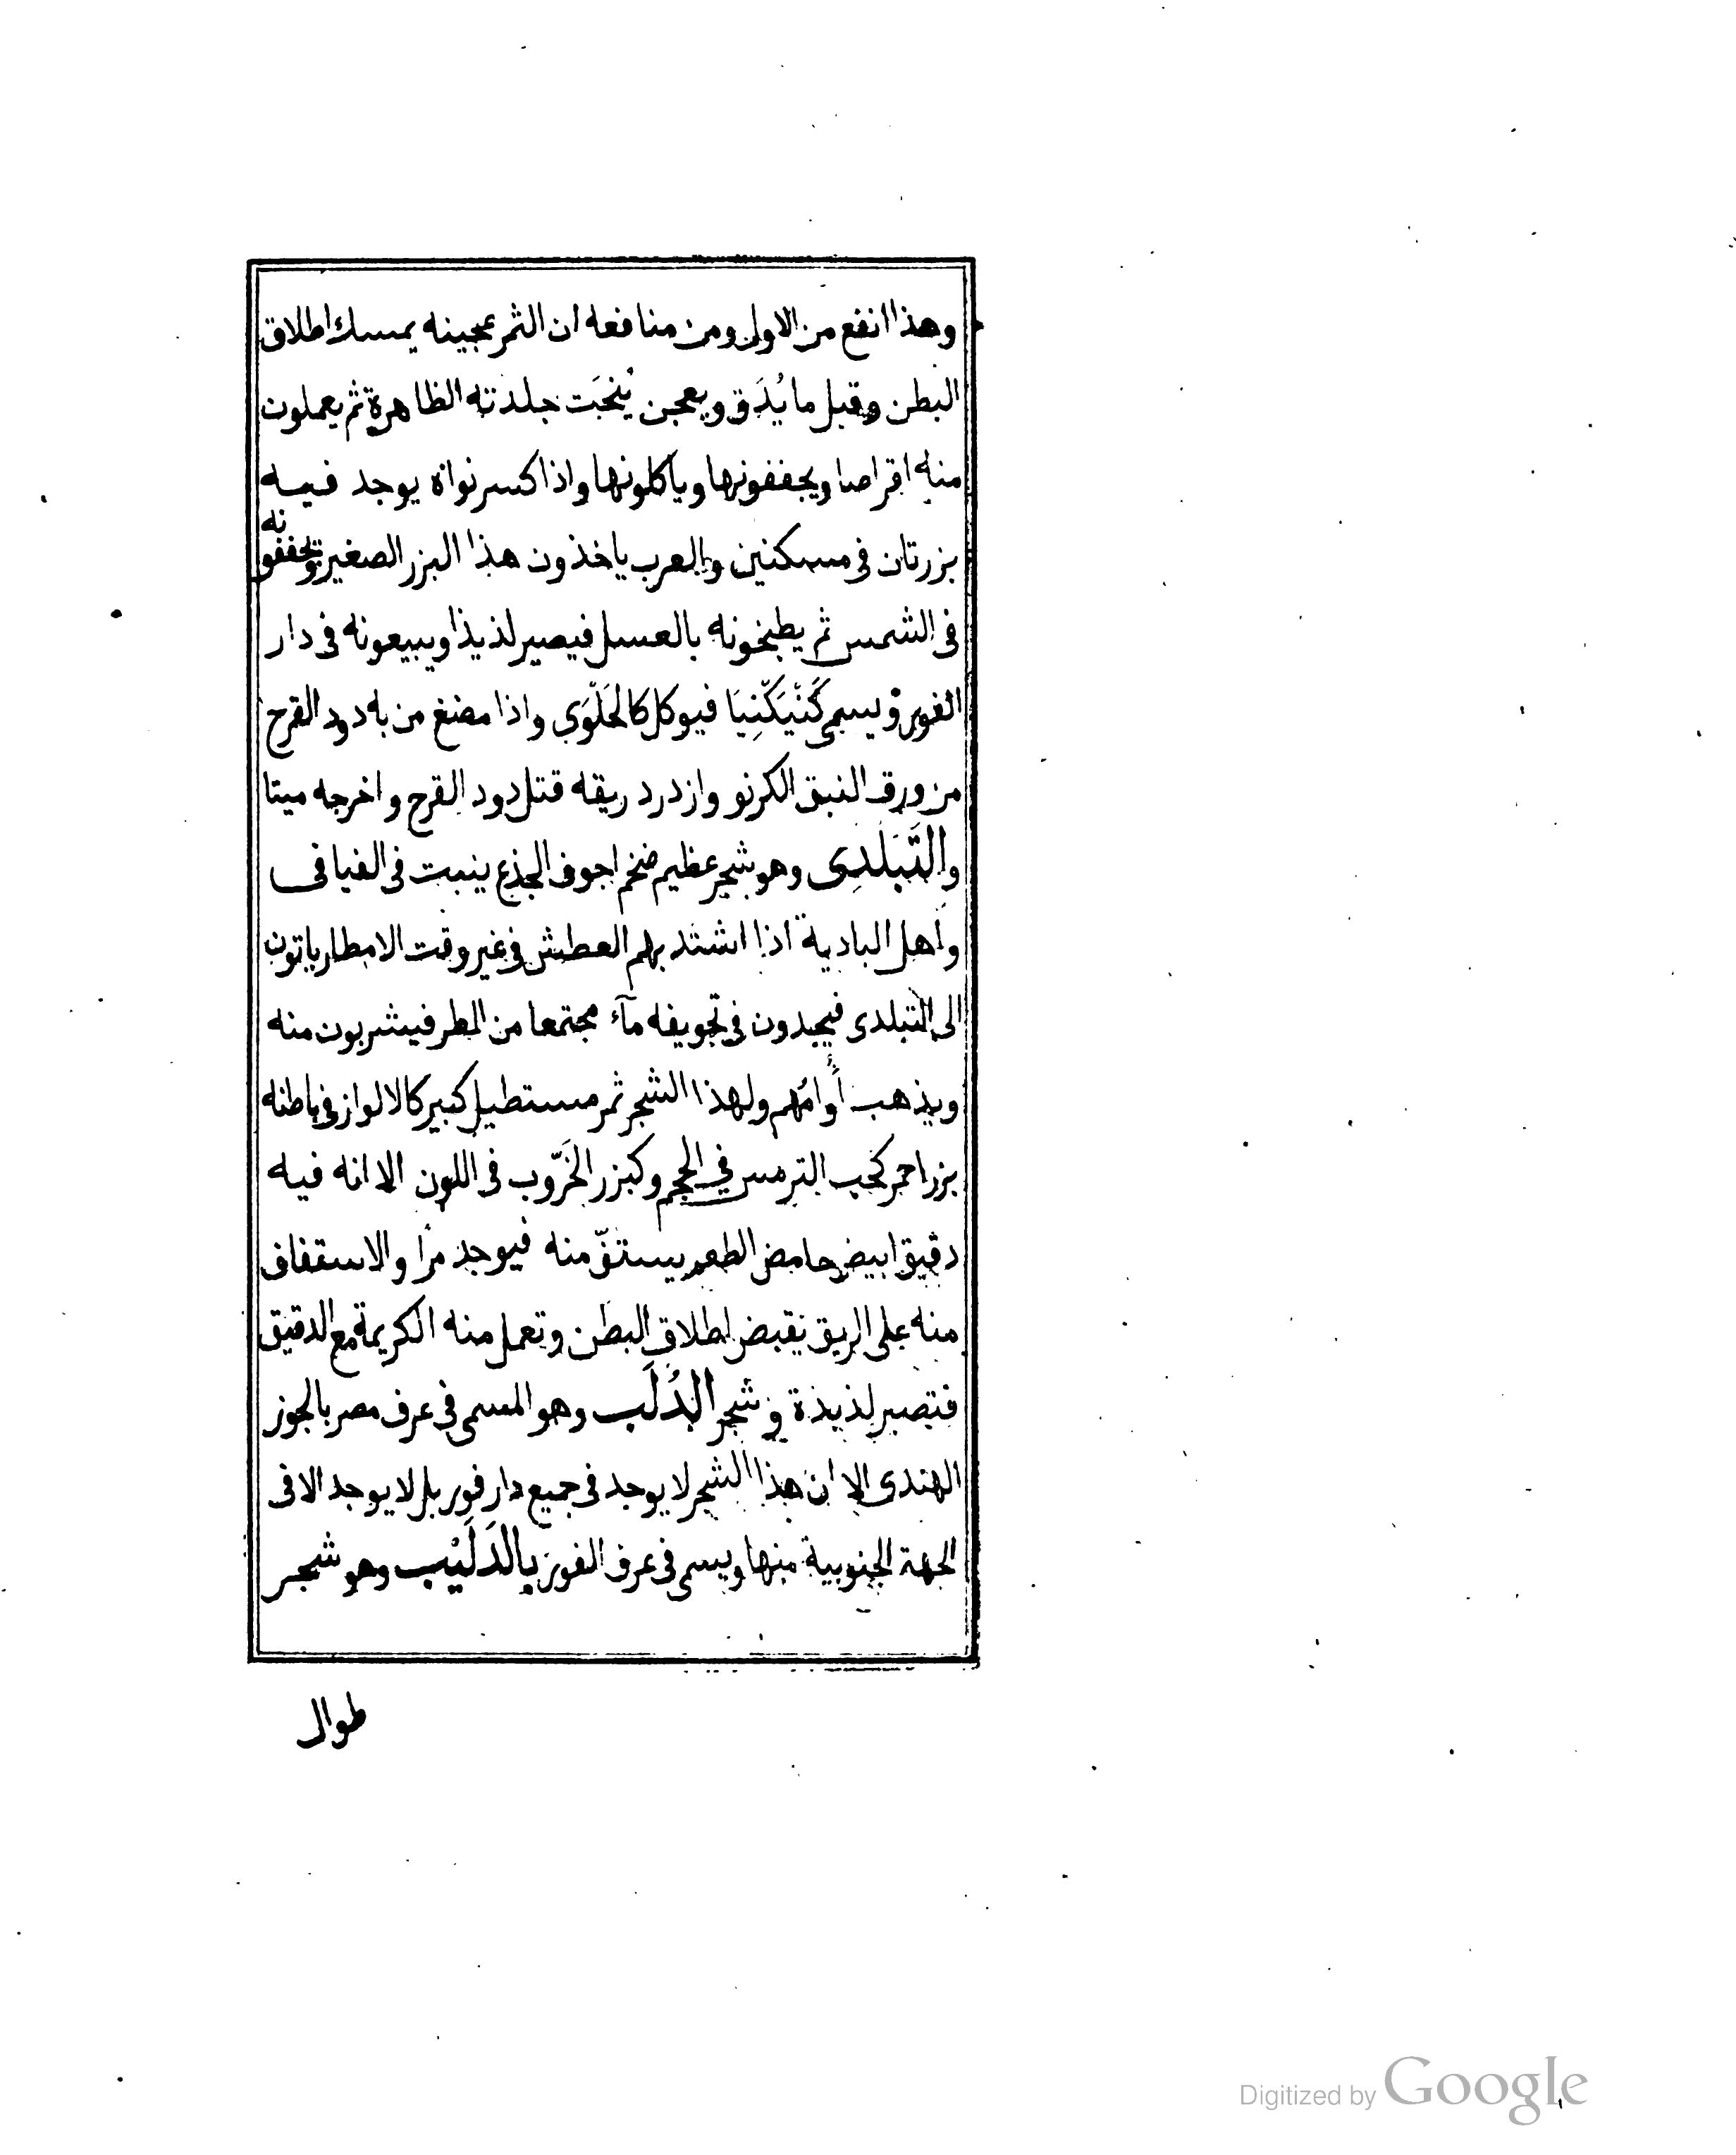 وهذا انفع من الاول ومن منافعه ان الثمر بجينه يمسك اطلاق
البطن وقبل ما يُدَق ويعجن يُنحَت جلدته الظاهرة ثم يعملون
منه اقراصا ويجففونها وياكلونها واذا كسر نواه يوجد فيه
بزرتان في مسكنين والعرب ياخذون هذا البزر الصغير ويجففونه
في الشمس ثم يطبخونه بالعسل فيصير لذيذا ويبيعونه في دار
الفور ويسمى كَنْيَكِّنِيَا فيوكل كالحَلْوَى واذا مضغ من به دود القرح
من ورق النبق الكرنو وازدرد ريقه قتل دود القرح واخرجه ميتا
والتَّبَلْدِى وهو شجر عظيم ضخم اجوف الجذع ينبت في الفيافى
وأهل البادية اذا اشتد بهم العطش في غير وقت الامطار ياتون
الى التبلدى فيجدون في تجويفه مآء مجتمعا من المطر فيشربون منه
ويذهب أُوامُهم ولهذا الشجر ثمر مستطيل كبير كالالواز في باطنه
بزر احمر كحب الترمس في الحجم وكبزر الخَرّوب في اللون الا انه فيه
دقيق ابيض حامض الطعم يستفّ منه فيوجد مزا والاستفاف
منه على الريق يقبض اطلاق البطن وتعمل منه الكريمة مع الدقيق
فتصير لذيذة و شجر الدُلَب وهو المسمى في عرف مصر بالجوز
الهندى الا ان هذا الشجر لا يوجد في جميع دار فور بل لا يوجد الا في
الجهة الجنوبية منها ويسمى في عرف الفور بالدَلَيْب وهو شجر
طوال
Digitized by Google